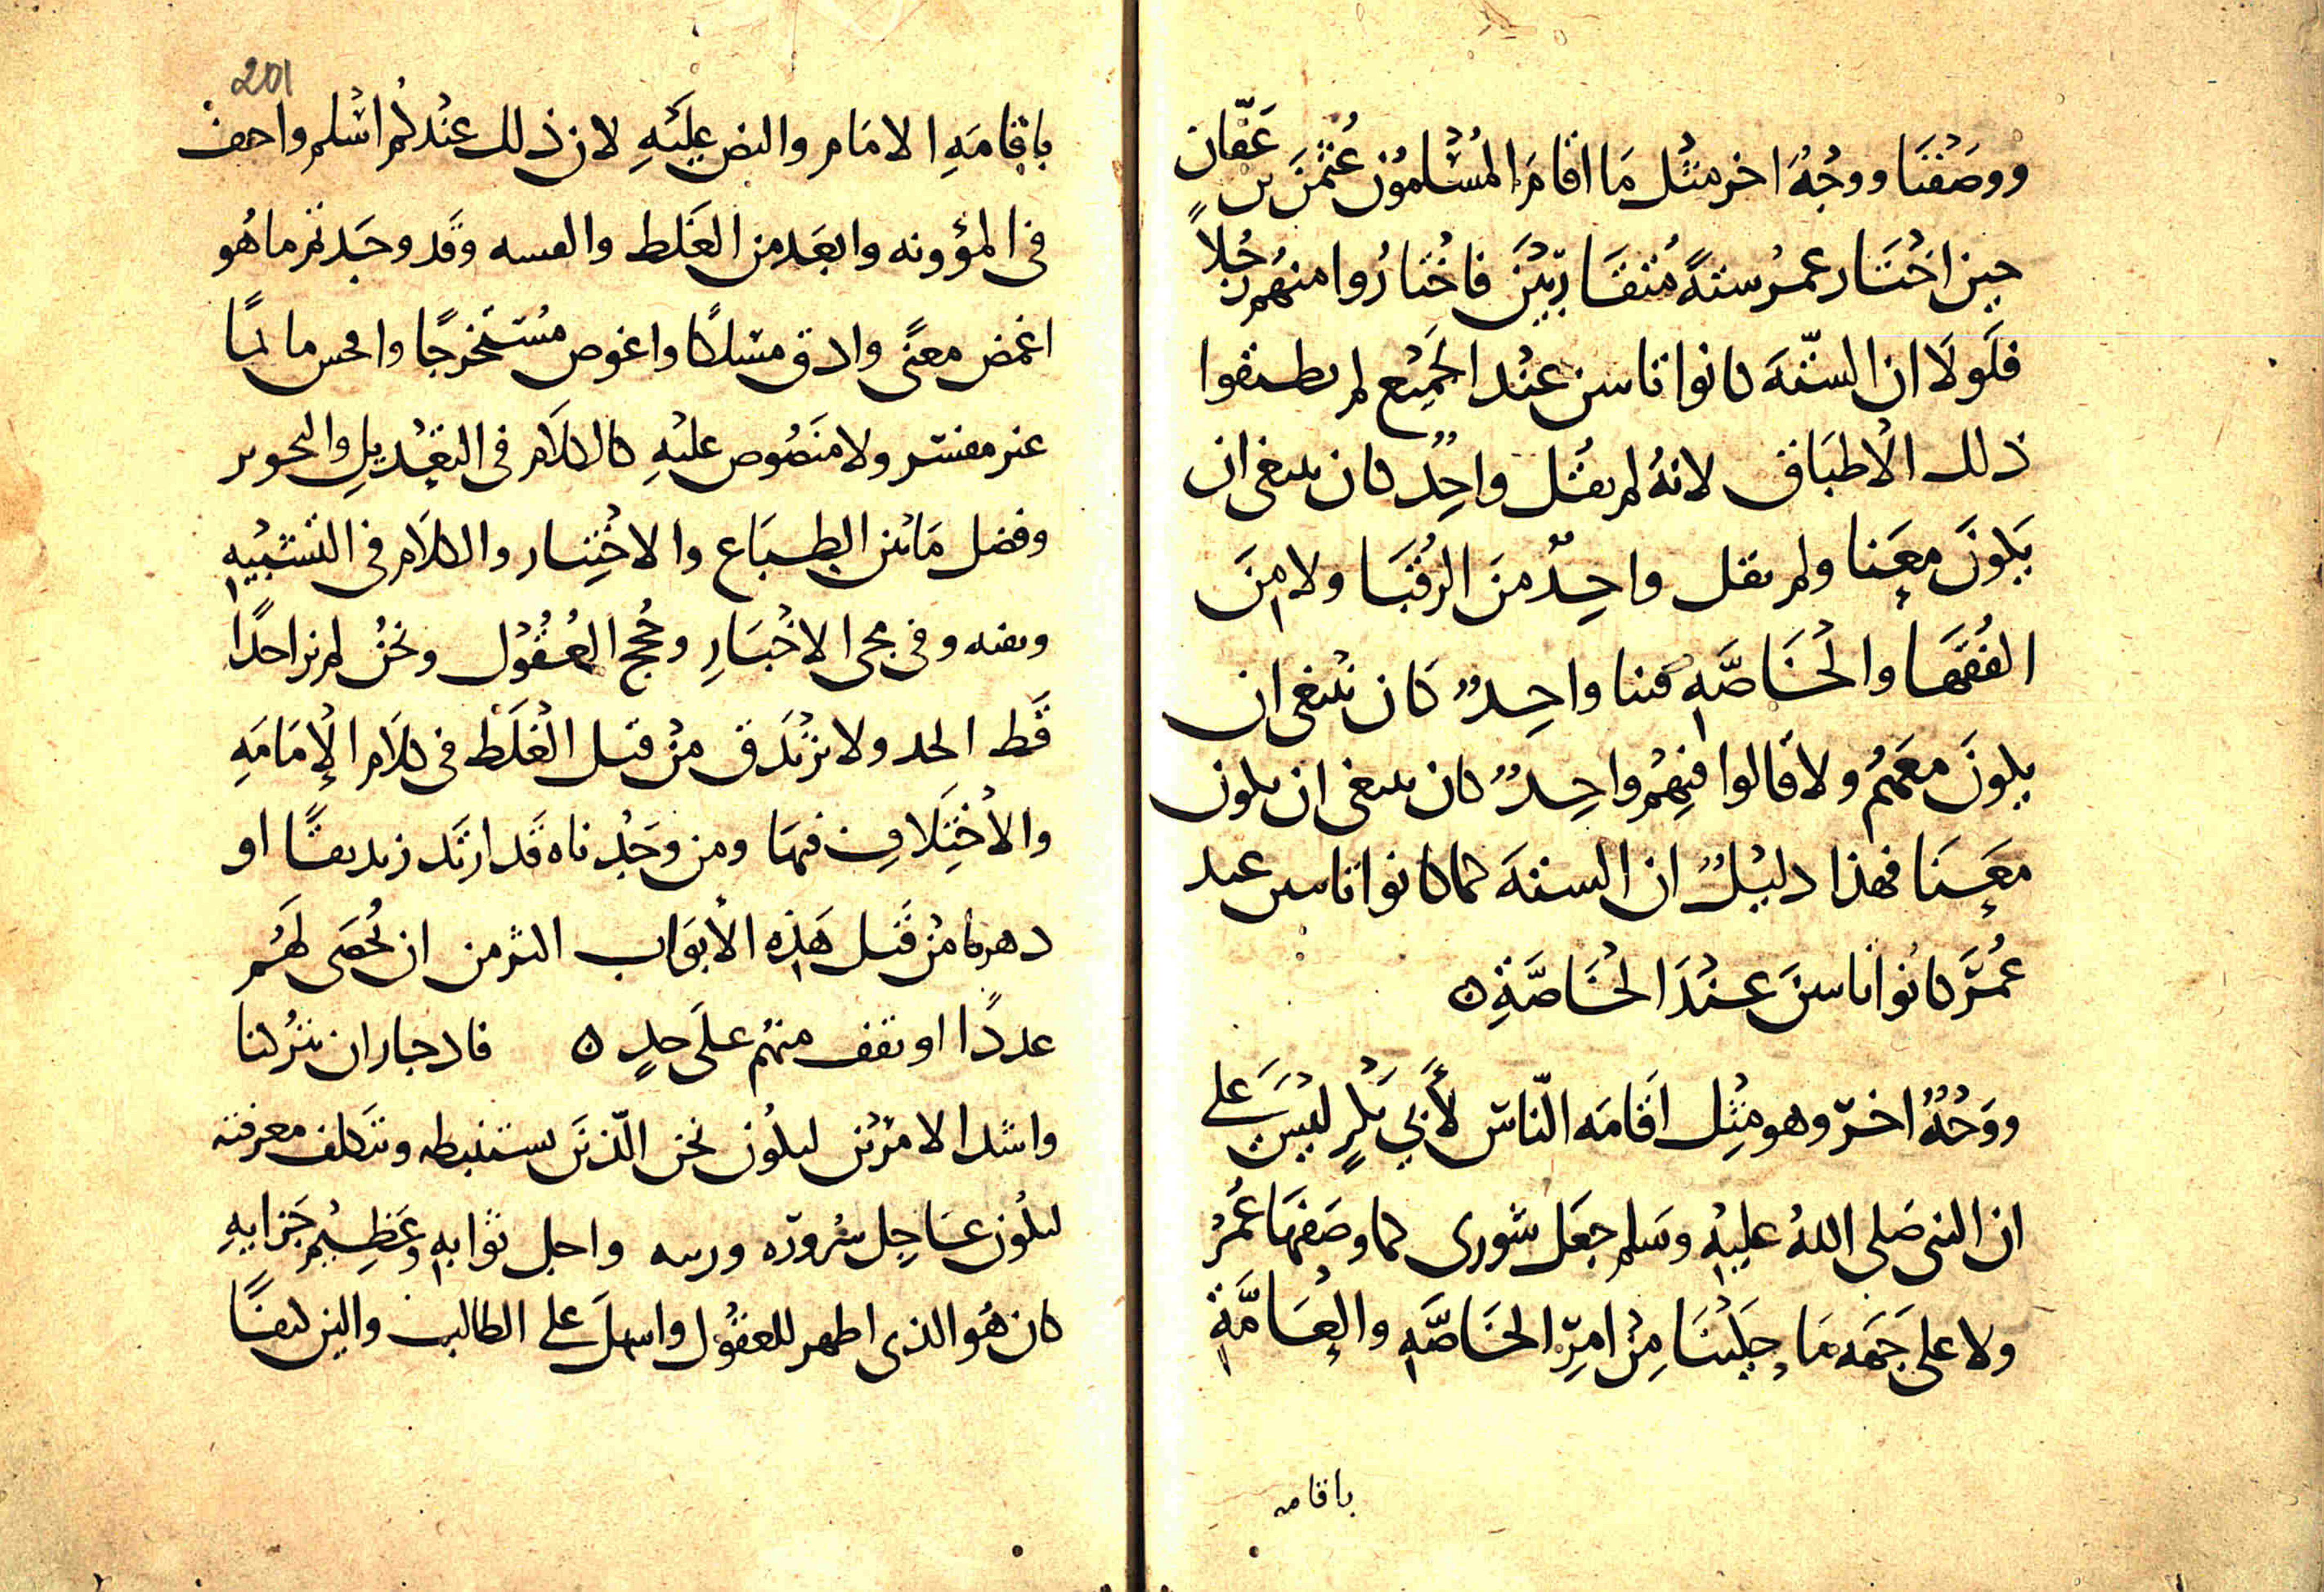 ووصفنا ووجه اخر مثل ما اقام المسلمون عثمن بن عفّان
حين اختار عمر ستة متقاربين فاختاروا منهم رجلاً
فلولا ان الستة كانوا بائنين عند الجميع لم يطبقوا
ذلك الاطباق لانه لم يقل واحد كان ينبغي ان
يكون معنا ولم يقل واحد من الرقبا ولا من
الفقها والخاصّة فينا واحد كان ينبغي ان
يكون معهم ولا قالوا فيهم واحد كان ينبغي ان يكون
معنا فهذا دليل ان الستة كما كانوا بائنين عند
عمر كانوا بائنين عند الخاصّة ٥
ووجه اخر وهو مثل اقامة النّاس لأبي بكر ليس على
ان النبي صلى الله عليه وسلم جعل شورى كما وصفها عمر
ولا على جهة ما حكينا من امر الخاصّة والعامّة
باقامه
201
باقامة الامام والنص عليه لان ذلك عندكم اسلم واخف
في المؤونه وابعد من الغلط والفسه وقد وجدتم ما هو
اغمض معنًى وادق مسلكًا واغوص مستخرجًا وا ما لمًا
غير مفسر ولا منصوص عليه كالكلام في التعديل والتجوير
وفصل ما بين الطباع والاختيار والكلام في التشبيه
ونفيه وفي مجى الاخبار وحجج العقول ونحن لم نر احدًا
قط الحد ولا تزندق من قبل الغلط في كلام الإمامة
والاختلاف فيها ومن وجدناه قد ارتد زنديقًا او
دهريا من قبل هذه الأبواب اكثر من ان نحصى لهم
عددًا او نقف منهم على حدٍ ٥ فاد جاز ان يتركنا
واشد الامرين ليكون نحن الّذين نستنبطه ونتكلف معرفته
ليكون عاجل سروره و واجل ثوابه وعظيم جزايه
كان هو الذي اظهر للعقول واسهل على الطالب والين كنفًا